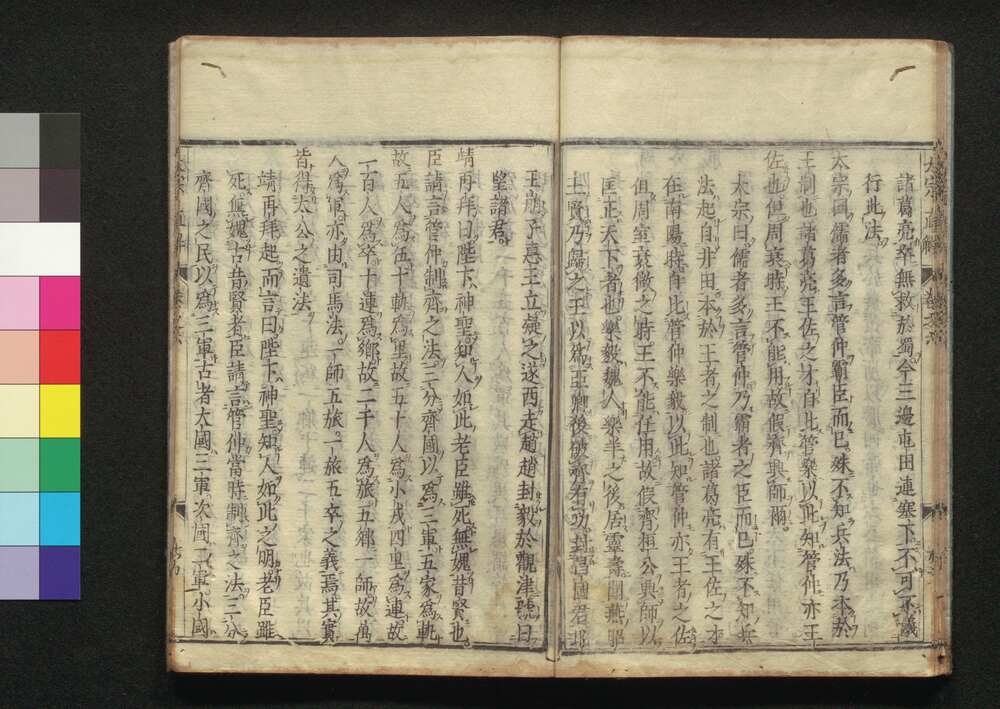 諸葛亮卒無救於蜀今三邊屯田連塞下不可不議
行此法
太宗曰儒者多言管仲霸臣而已殊不知兵法乃本於
王制也諸葛亮王佐之才自比管樂以此知管仲亦王
佐也但周衰時王不能用故假齊興師爾
太宗曰儒者多言管仲乃霸者之臣而已殊不知兵
法起自井田本於王者之制也諸葛亮有王佐之才
在南陽時自比管仲樂毅以此知管仲亦王者之佐
但周室衰微之時王不能任用故假齊桓公興師以
匡正天下者也樂毅魏人樂羊之後居靈壽聞燕昭
王賢乃歸之王以為亞卿後破齊有功封昌國君昭
王崩子惠王立疑之遂西走趙趙封毅於觀津號曰
望諸君
靖再拜曰陛下神聖知人如此老臣雖死無媿昔賢也
臣請言管仲制齊之法三分齊國以為三軍五家為軌
故五人為伍十軌為里故五十人為小戎四里為連故
二百人為卒十連為鄉故二千人為旅五鄉一師故萬
人為軍亦由司馬法一師五旅一旅五卒之義焉其實
皆得太公之遺法
靖再拜起而言曰陛下神聖知人如此之明老臣雖
死無媿古昔賢者臣請言管仲當時制齊之法三分
齊國之民以為三軍古者大國三軍次國二軍小國